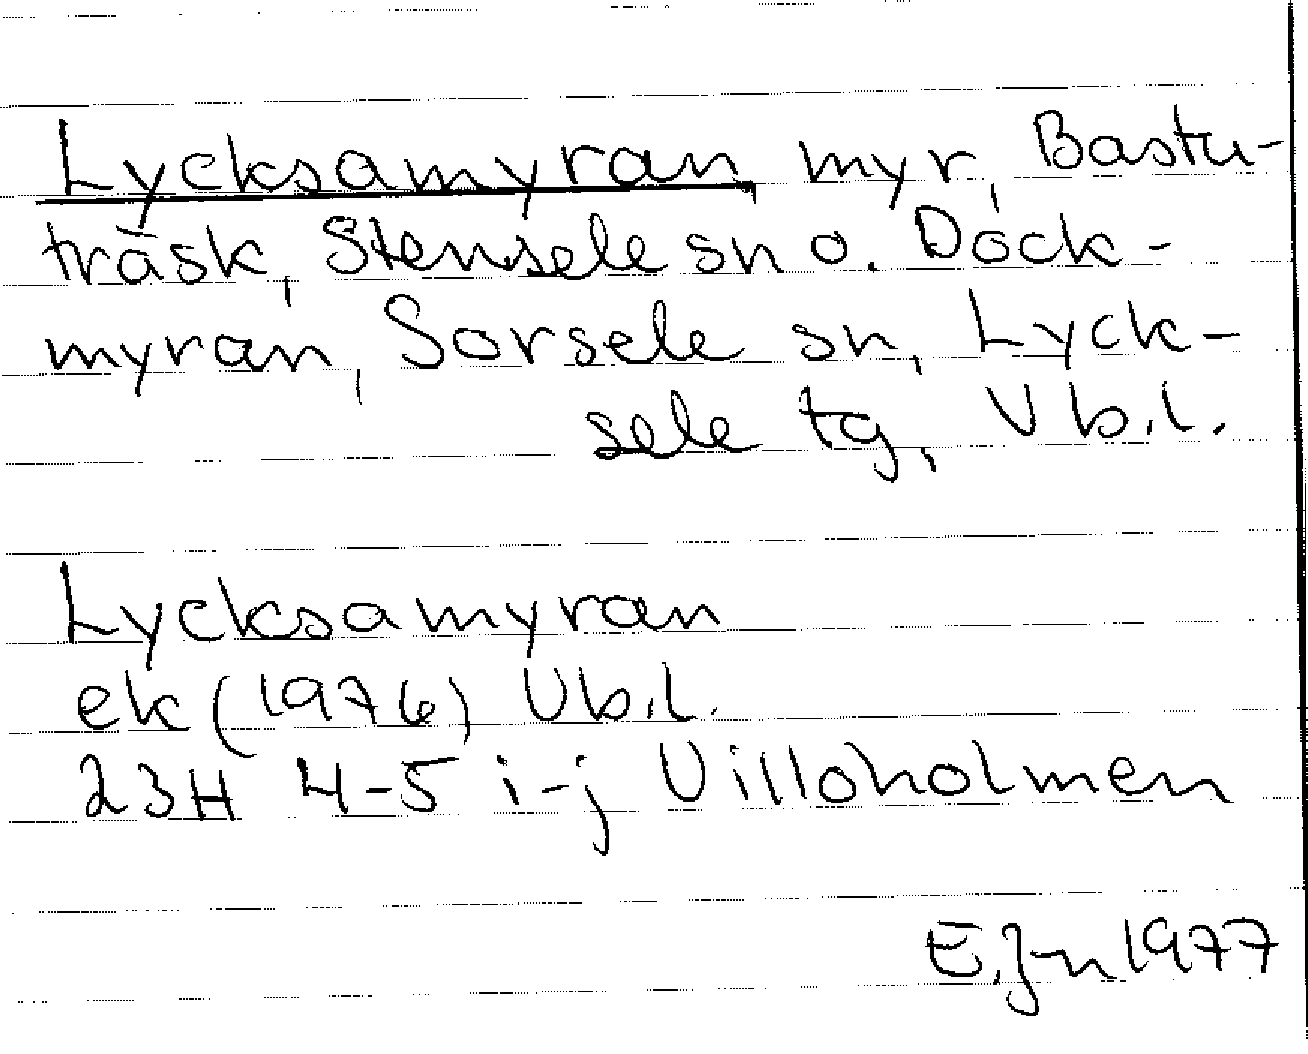 Lycksamyran, myr, Bastu-
träsk, Stensele sn o. Dock-
myran, Sorsele sn, Lyck-
sele tg, Vb.l.
Lycksamyran
ek (1976) Vb.l.
23H 4-5 i-j Villoholmen
E.J-n 1977